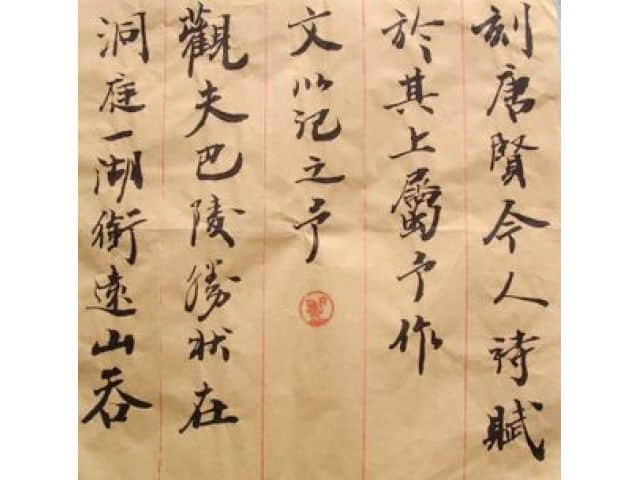 刻唐賢今人詩賦
於其上屬予作
文以記之予
觀夫巴陵勝狀在
洞庭一湖銜遠山吞